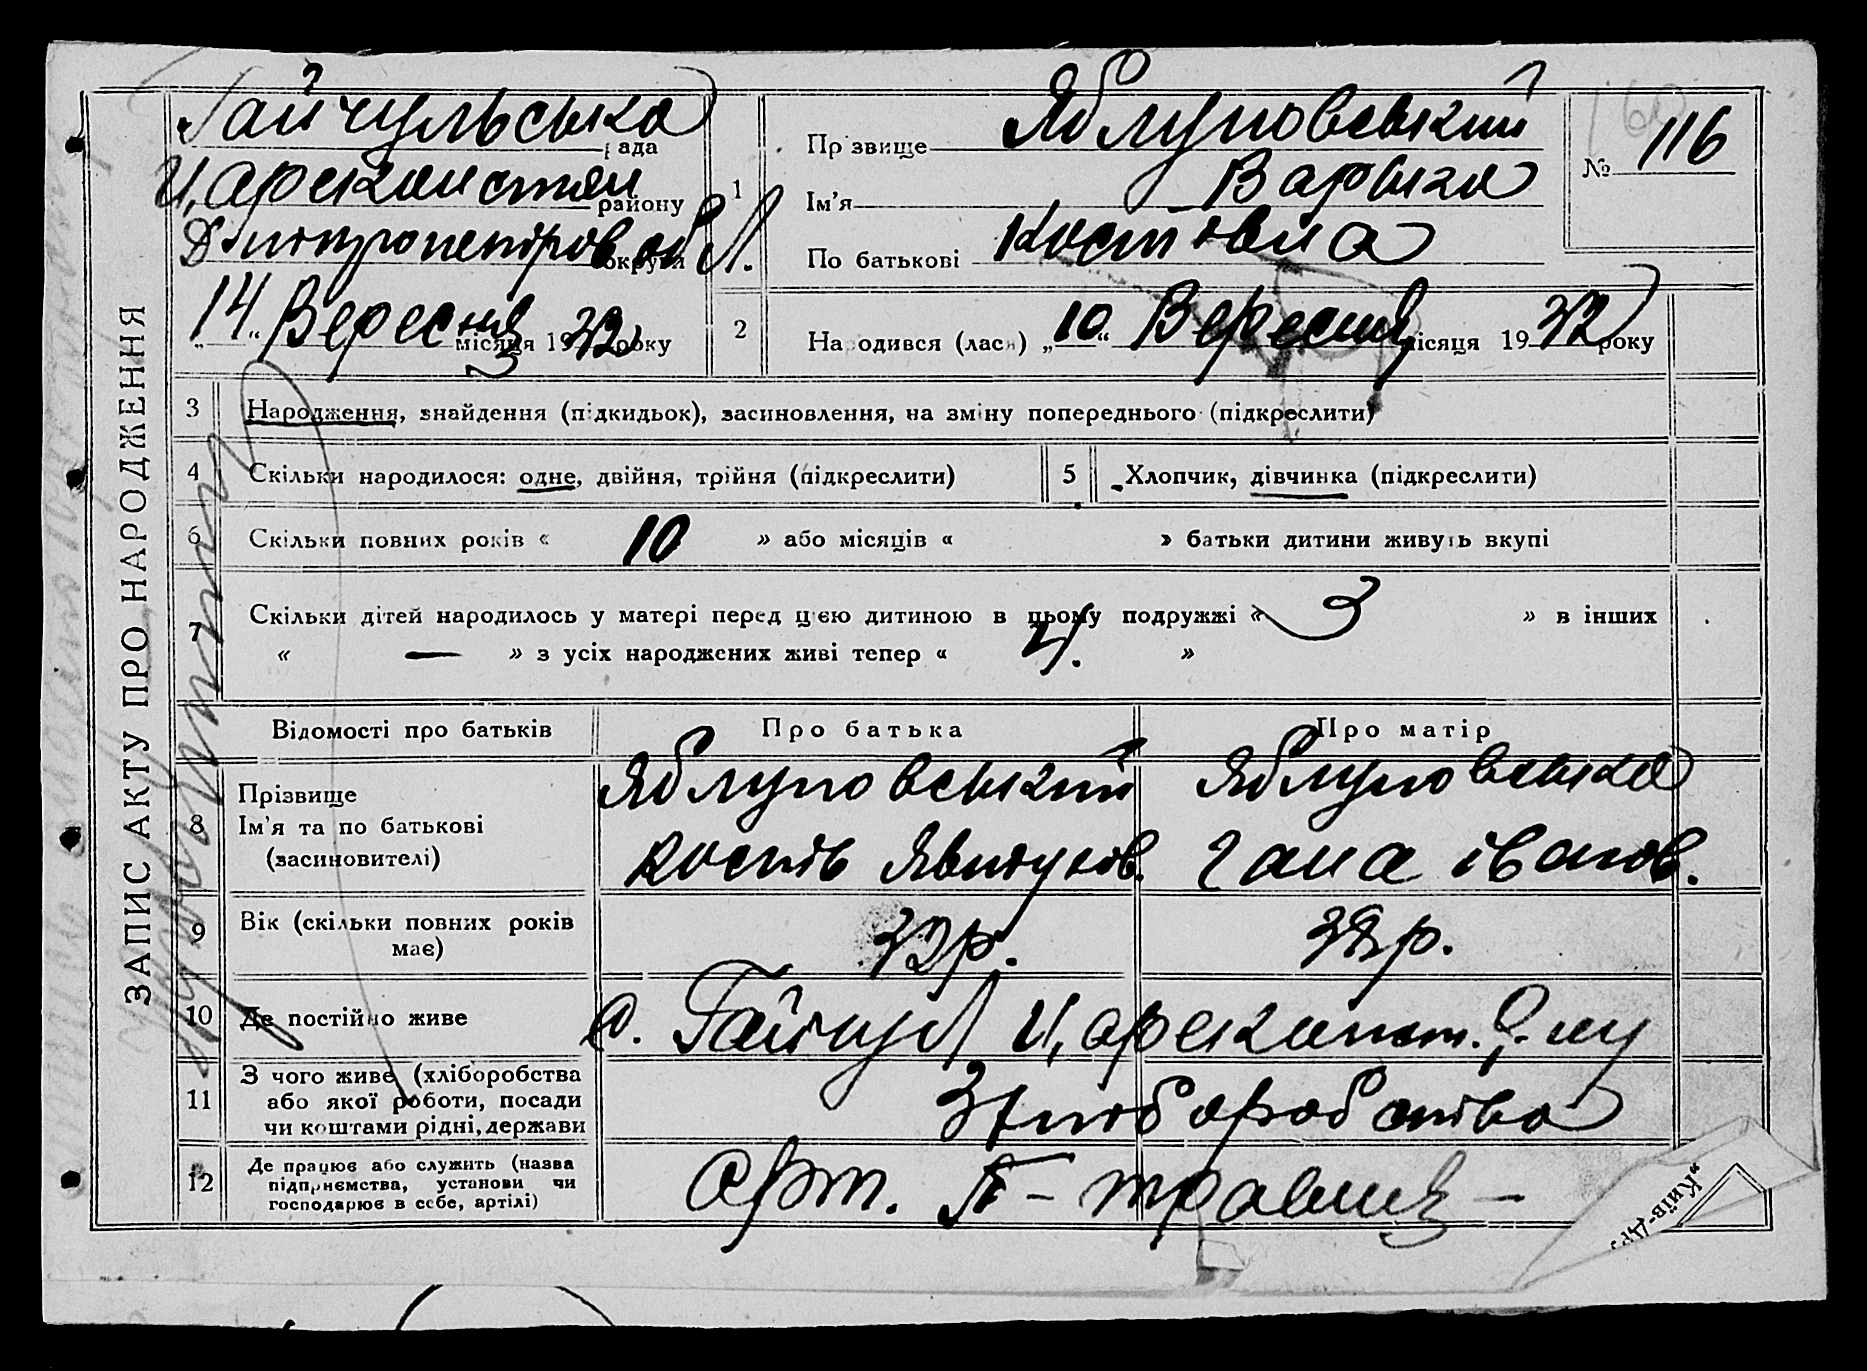 ЗАПИС АКТУ ПРО НАРОДЖЕННЯ
Гайчульська рада
Царекнстян району
Дніпропетров обл. округи
„14“ Вересня місяця 1932 року
1
Прізвище Яблуновський
Ім'я Варька
По батькові Костівна
№ 116
2
Народився (лася) „10“ Вересня місяця 1932 року
3 Народження, знайдення (підкидьок), засиновлення, на зміну попереднього (підкреслити)
4 Скільки народилося: одне, двійня, трійня (підкреслити)
5 Хлопчик, дівчинка (підкреслити)
6 Скільки повних років « 10 » або місяців « » батьки дитини живуть вкупі
7 Скільки дітей народилось у матері перед цією дитиною в цьому подружжі « 3 » в інших
« — » з усіх народжених живі тепер « 4. »
Відомості про батьків Про батька Про матір
8 Прізвище
Ім'я та по батькові
(засиновителі)
Яблуновський
Кость Явтухів.
Яблуновська
Гана Іванов.
9 Вік (скільки повних років має)
32р.
38р.
10 Де постійно живе
с. Гайчул
11 З чого живе (хліборобства
або якої роботи, посади
чи коштами рідні, держави
З хліборобства
12 Де працює або служить (назва
підприємства, установи чи
господарює в себе, артілі)
Арт. травня —
„Київ-Др